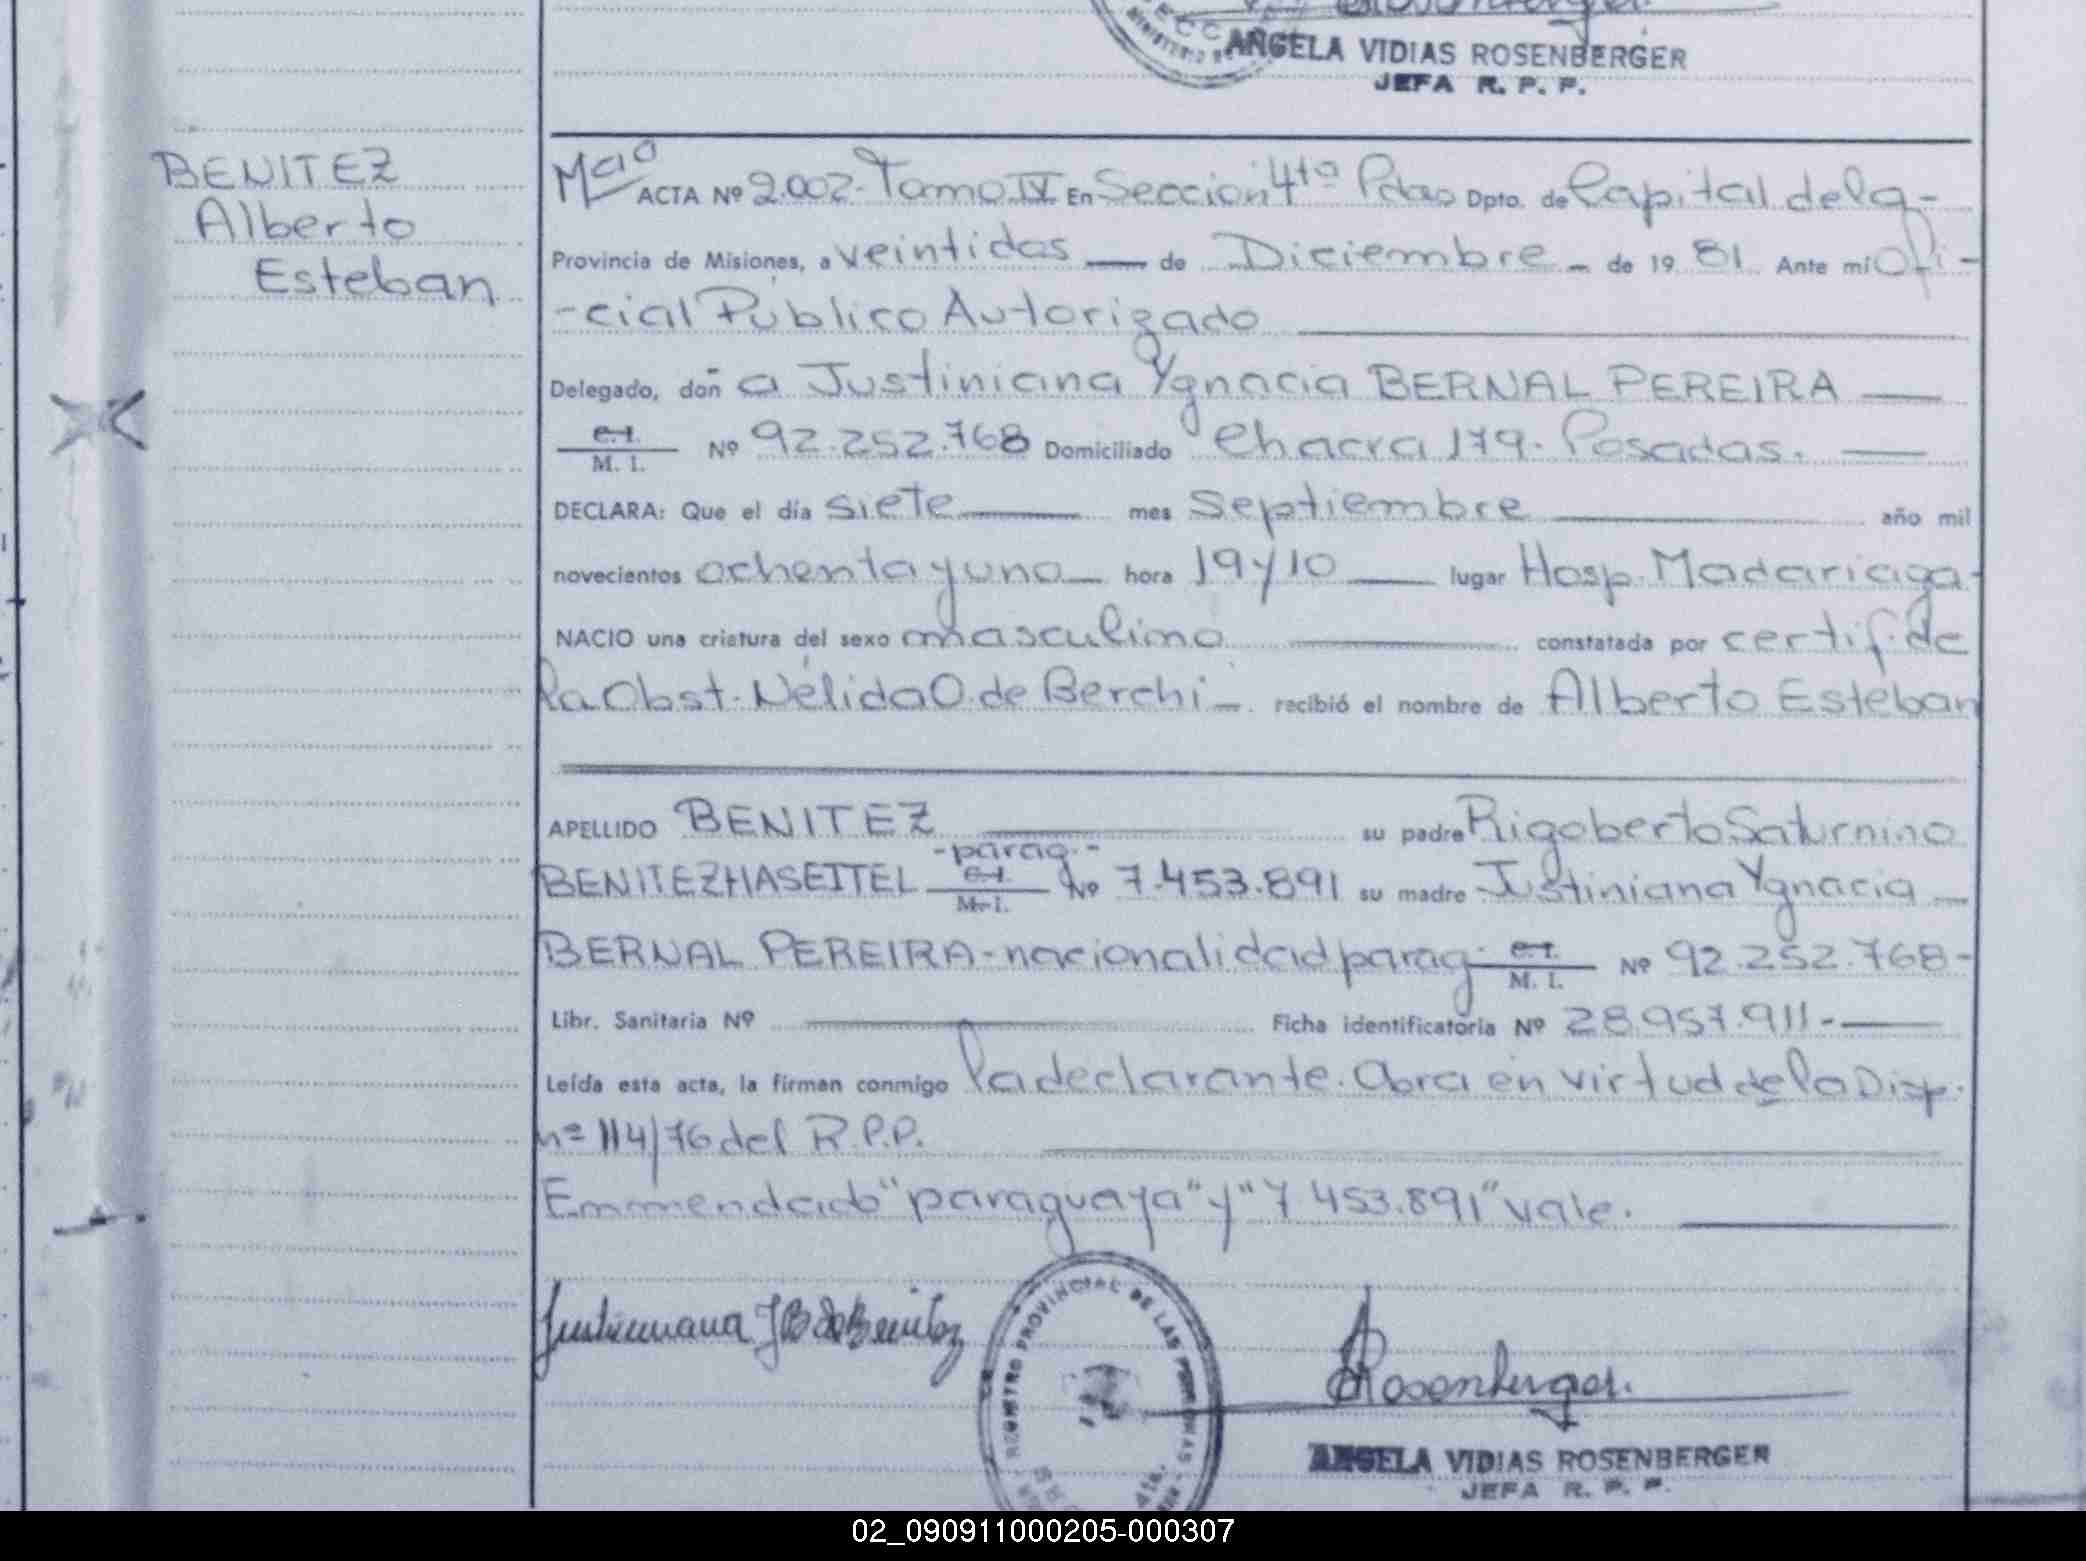 ANGELA VIDIAS ROSENBERGER
JEFA R. P. P.
BENITEZ
Alberto
Esteban
Mao ACTA Nº 2.002- Tomo IV En Seccion 4ta Pdas Dpto. de Capital de la-
Provincia de Misiones, a veintidos — de Diciembre - de 19 81 Ante mi Ofi-
-cial Público Autorizado
Delegado, doñ a Justiniana Ygnacia BERNAL PEREIRA —
C.I.
M. I. Nº 92.252.768 Domiciliado Chacra 179. Posadas. —
DECLARA: Que el día siete — mes Septiembre — año mil
novecientos ochenta y uno — hora 19 y 10 — lugar Hosp. Madariaga-
NACIO una criatura del sexo masculino — constatada por certif. de
la Obst. Nélida O. de Berchi -. recibió el nombre de Alberto Esteban
APELLIDO BENITEZ — su padre Rigoberto Saturnino
-parag.-
BENITEZ HASEITEL C.I. M.I. Nº 7.453.891 su madre Justiniana Ygnacia —
BERNAL PEREIRA- nacionalidad parag. C.I. M. I. Nº 92.252.768-
Libr. Sanitaria Nº — Ficha identificatoria Nº 28.957.911.-—
Leída esta acta, la firman conmigo la declarante. Obra en virtud de la Disp.
nº 114/76 del R.P.P.
Emmendado "paraguaya" y "7 453.891" vale.
Justiniana Y B de Benitez
REGISTRO PROVINCIAL DE LAS PERSONAS
Rosenberger.
ANGELA VIDIAS ROSENBERGER
JEFA R. P. P.
02_090911000205-000307